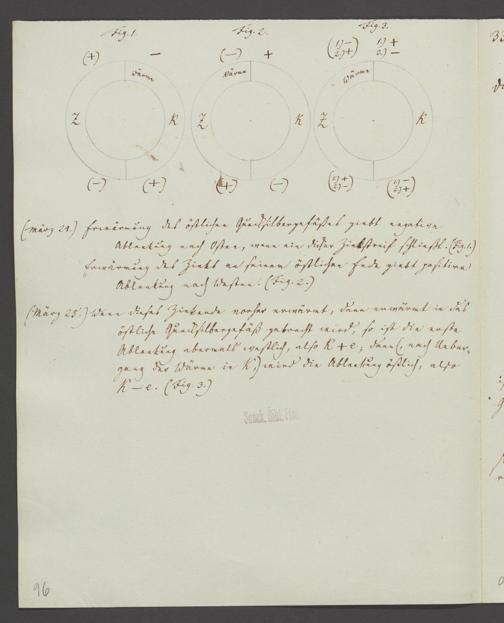 Fig. 1.
Fig. 2.
Fig. 3.
(+) −
(−) +
(1) − 2) +) 1) + 2) −
Wärme
Wärme
Wärme
Z K
Z K
Z K
(−) (+)
(+) (−)
(1) + 2) −) (1) − 2) +)
(März 24.) Erwärmung des östlichen Quecksilbergefäßes giebt negative
Ablenkung nach Osten, wenn ein dicker Zinkstreif schließt. (Fig. 1.)
Erwärmung des Zinks an seinem östlichen Ende giebt positive
Ablenkung nach Westen. (Fig. 2.)
(März 25.) Wenn dieses Zinkende vorher erwärmt, dann erwärmt in das
östliche Quecksilbergefäß gebracht wird, so ist die erste
Ablenkung abermals westlich, also K + e; dann (nach Ueber-
gang der Wärme in K) wird die Ablenkung östlich, also
K − e. (Fig. 3.)
Senck. Bibl. Ffm.
96
33